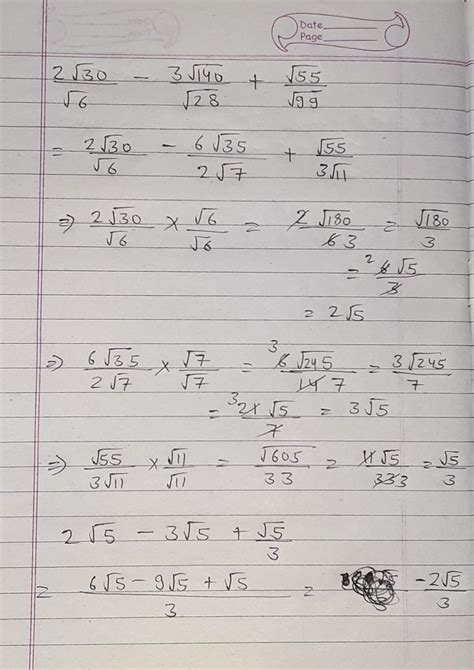 Date
Page
2√30/√6 - 3√140/√28 + √55/√99
= 2√30/√6 - 6√35/2√7 + √55/3√11
⇒ 2√30/√6 × √6/√6 = 2√180/6 3 = √180/3
= 2 6√5/3
= 2√5
⇒ 6√35/2√7 × √7/√7 = 3 6√245/14 7 = 3√245/7
= 3 21√5/7 = 3√5
⇒ √55/3√11 × √11/√11 = √605/33 = 11√5/33 3 = √5/3
2√5 - 3√5 + √5/3
= 6√5 - 9√5 + √5/3 = -2√5/3